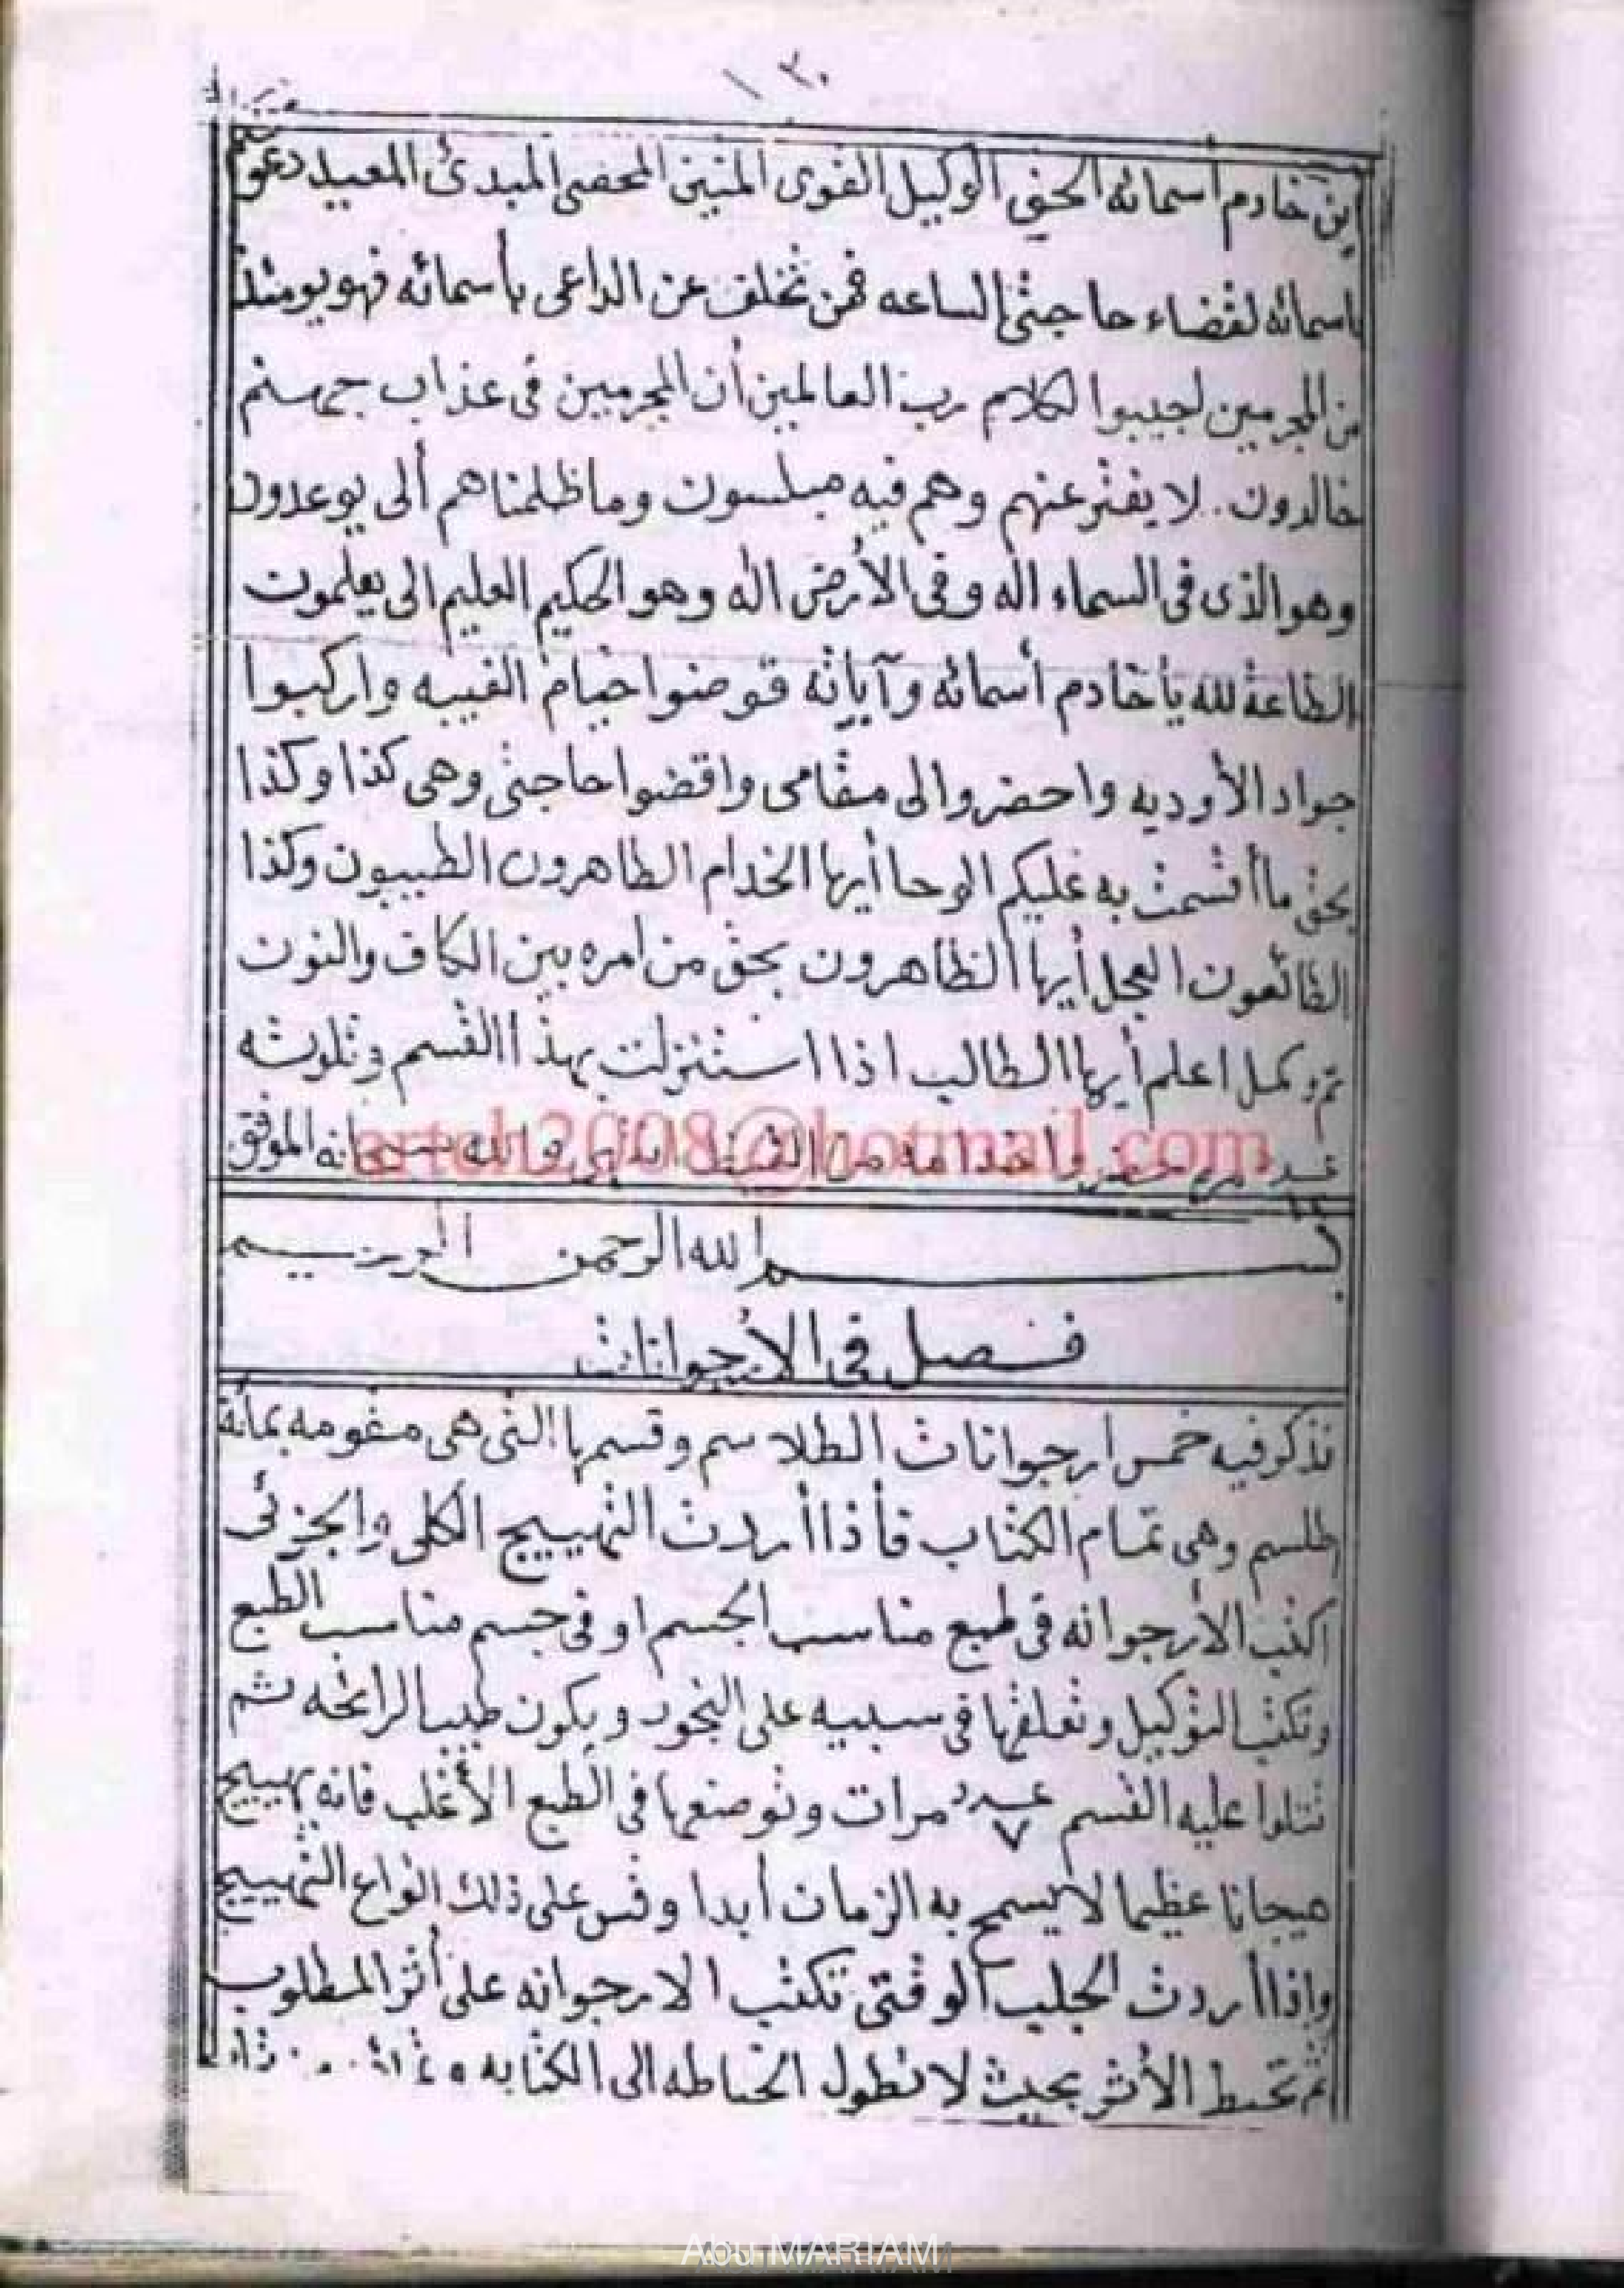 ٣٠
أين خادم اسمائه الحق الوكيل القوى المتين المحصى المبدئ المعيد دعوتكم
باسمائه لقضاء حاجتى الساعه فمن تخلف عن الداعى بأسمائه فهو يومئذ
من المجرمين لجيبوا لكلام رب العالمين أن المجرمين فى عذاب جهنم
خالدون . لا يفتر عنهم وهم فيه مبلسون وما ظلمناهم ألى يوعدون
وهو الذى فى السماء اله وفى الأرض اله وهو الحكيم العليم الى يعلمون
الطاعة لله يا خادم أسمائه وآياته قوضوا خيام الغيبه واركبوا
جواد الأوديه واحضروا الى مقامى واقضوا حاجتى وهى كذا وكذا
بحق ما أقسمت به عليكم الوحا أيها الخدام الطاهرون الطيبون وكذا
الطائعون العجل أيها الظاهرون بحق من امره بين الكاف والنون
تم وكمل اعلم أيها الطالب اذا استنزلت بهذا القسم وتلوته
والله سبحانه الموفق
arteh2008@hotmail.com
بسم الله الرحمن الرحيم
فصل فى الأرجوانات
نذكر فيه خمس ارجوانات الطلاسم وقسمها التى هى مغومه بمائة
طلسم وهى تمام الكتاب فأذا أردت التهييج الكلى والجزئى
اكتب الأرجوانه فى طبع مناسب الجسم او فى جسم مناسب الطبع
وتكتب التوكيل وتعلقها فى سبيبه على البخور ويكون طيب الرائحه ثم
تتلوا عليه القسم عدد ٧ مرات وتوضعها فى الطبع الأغلب فانه يهييج
هيجانا عظيما لا يسمح به الزمان أبدا وقس على ذلك انواع التهييج
واذا أردت الجلب الوقتى تكتب الارجوانه على أثر المطلوب
ثم تحيط الأثر بحيث لا تطول الحياطه الى الكتابه
Abu MARIAM